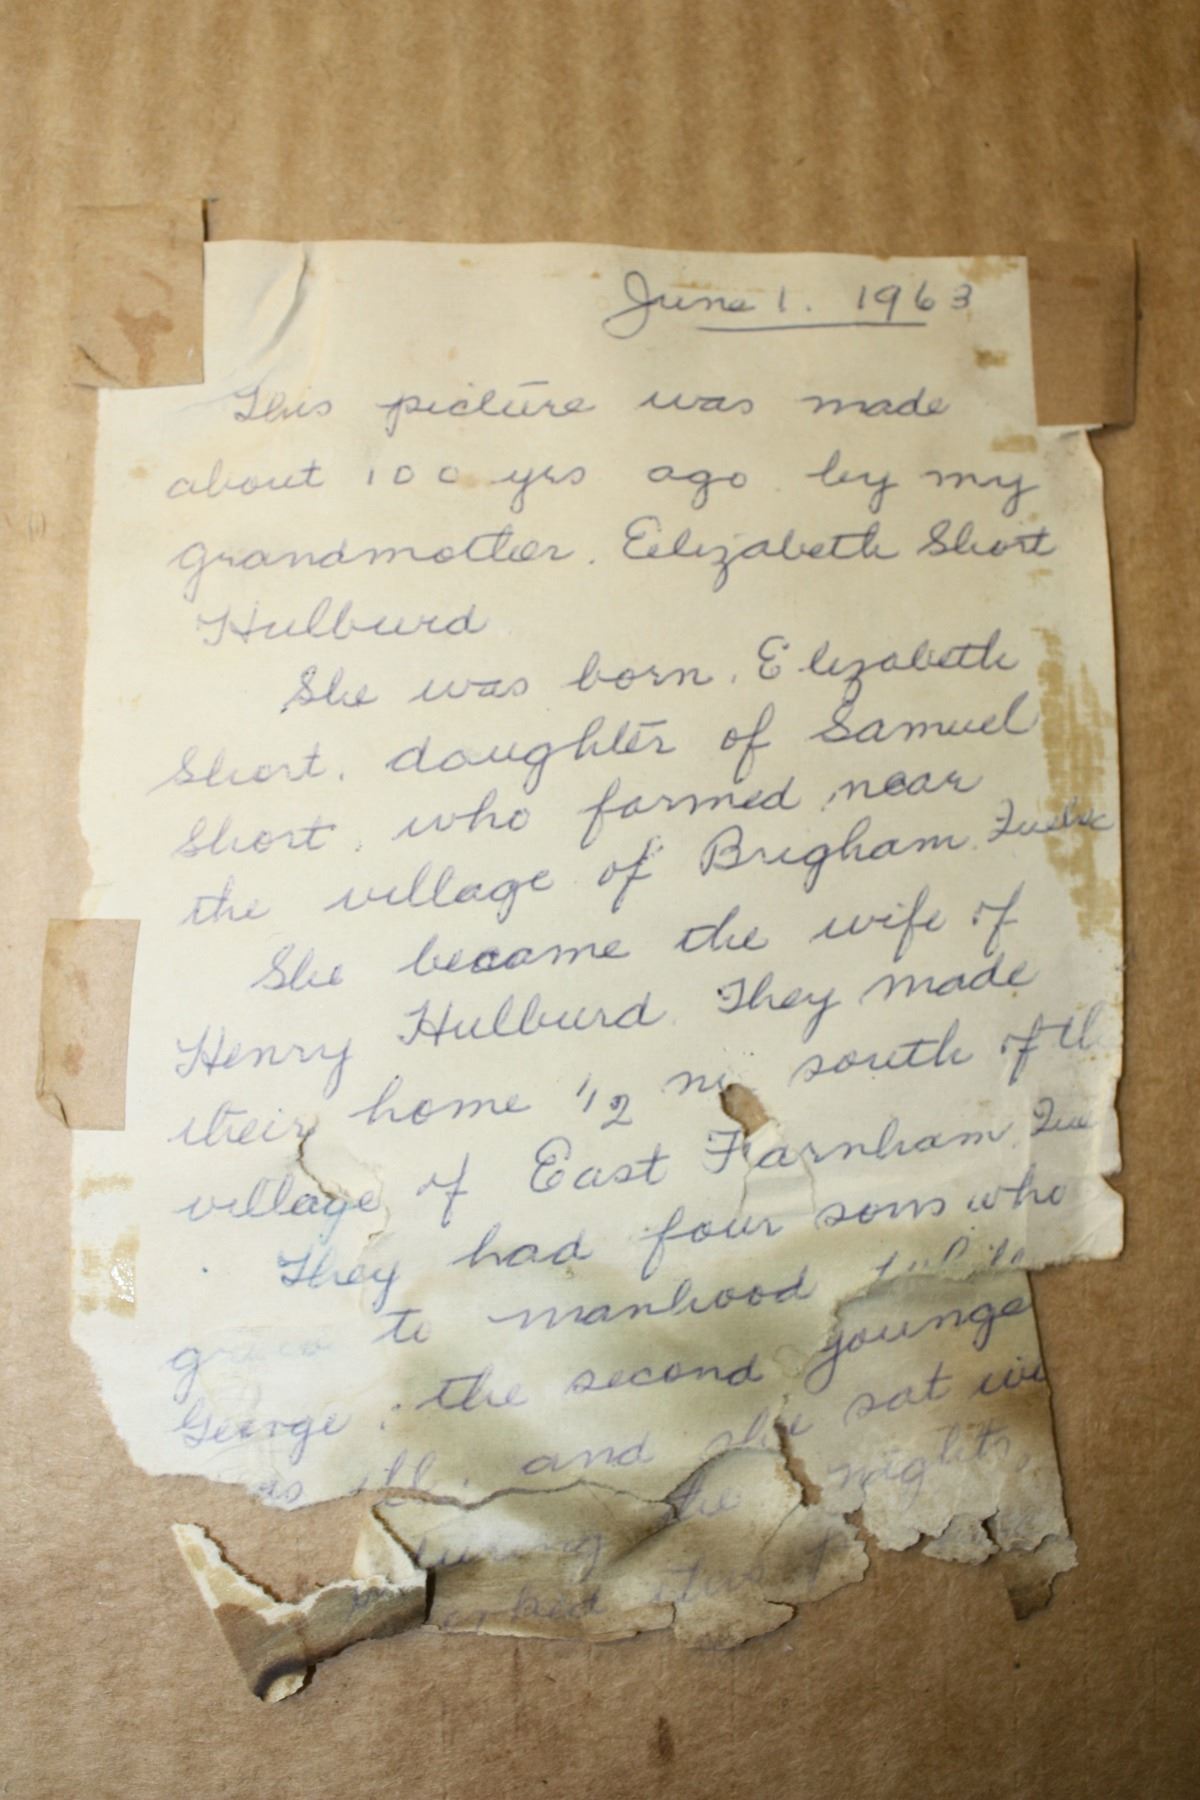 June 1. 1963
This picture was made
about 100 yrs ago by my
grandmother. Elizabeth Short
Hulburd
She was born. Elizabeth
Short. daughter of Samuel
Short. who farmed near
the village of Brigham
She became the wife of
Henry Hulburd. They made
their home 1/2 mi south of
village of East Farnham
They had four sons who
to manhood
George; the second
ill. and she sat
during the nights,
worked this